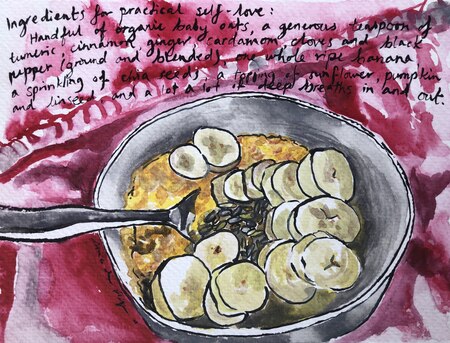 Ingredients for practical self-love:
Handful of organic baby oats, a generous teaspoon of
tumeric, cinnamon, ginger, cardamom, cloves and black
pepper (ground and blended), one whole ripe banana
a sprinkling of chia seeds, a of sunflower, pumpkin
and linseed and a lot a lot of deep breaths in and out.